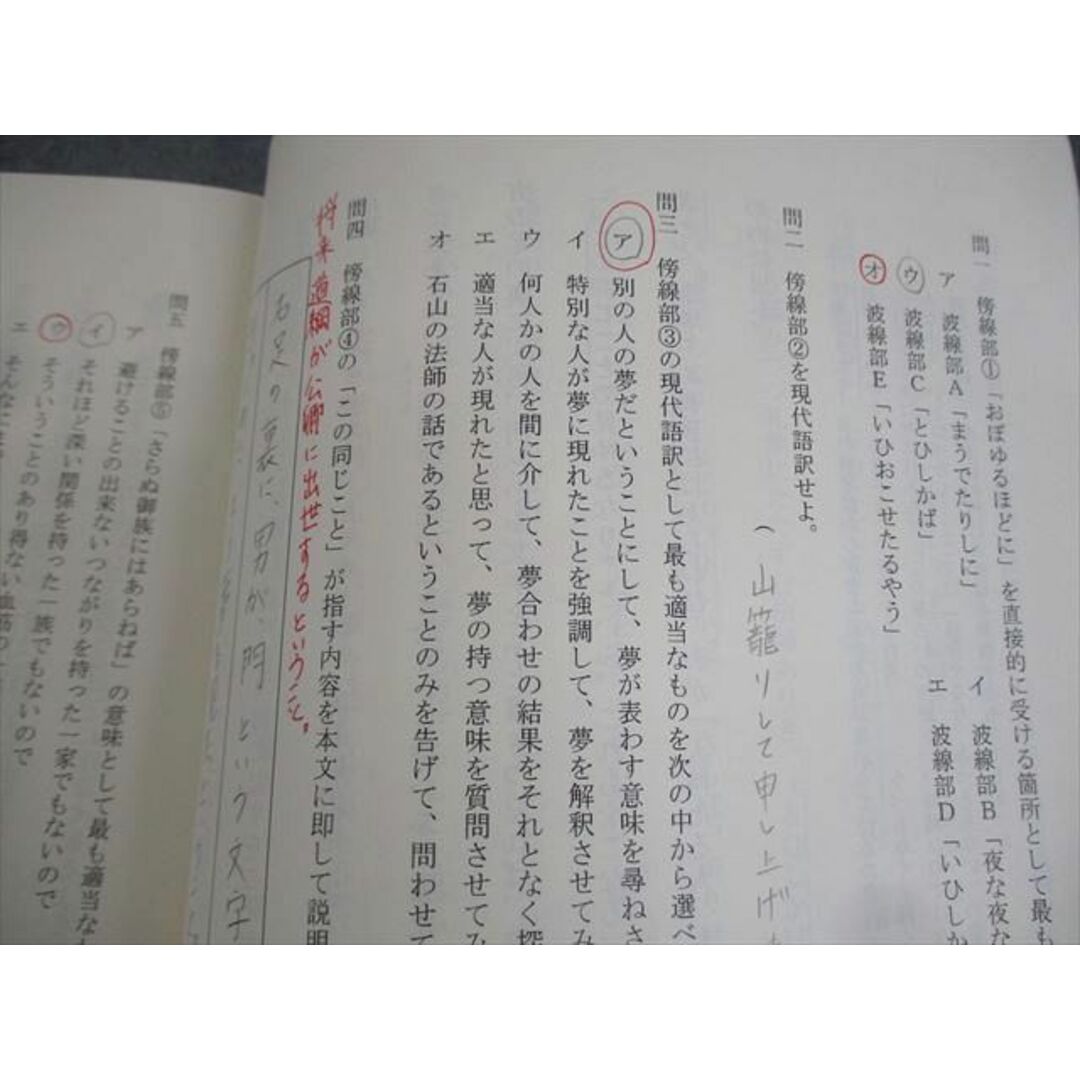 問一 傍線部①「おぼゆるほどに」を直接的に受ける箇所として最も
ア 波線部A「まうでたりしに」
イ 波線部B「夜な夜な
ウ 波線部C「とひしかば」
エ 波線部D「いひしか
オ 波線部E「いひおこせたるやう」
問二 傍線部②を現代語訳せよ。
(山籠りして申し上げ
問三 傍線部③の現代語訳として最も適当なものを次の中から選べ
ア 別の人の夢だということにして、夢が表わす意味を尋ねさ
イ 特別な人が夢に現れたことを強調して、夢を解釈させてみ
ウ 何人かの人を間に介して、夢合わせの結果をそれとなく探
エ 適当な人が現れたと思って、夢の持つ意味を質問させてみ
オ 石山の法師の話であるということのみを告げて、問わせて
問四 傍線部④の「この同じこと」が指す内容を本文に即して説明
将来道綱が公卿に出世するということ。
右足の裏に、男が、門という文字
問五 傍線部⑤「さらぬ御族にはあらねば」の意味として最も適当な
ア 避けることの出来ないつながりを持った一家でもないので
イ それほど深い関係を持った一族でもないので
ウ そういうことのあり得ない血筋の
エ そんなに